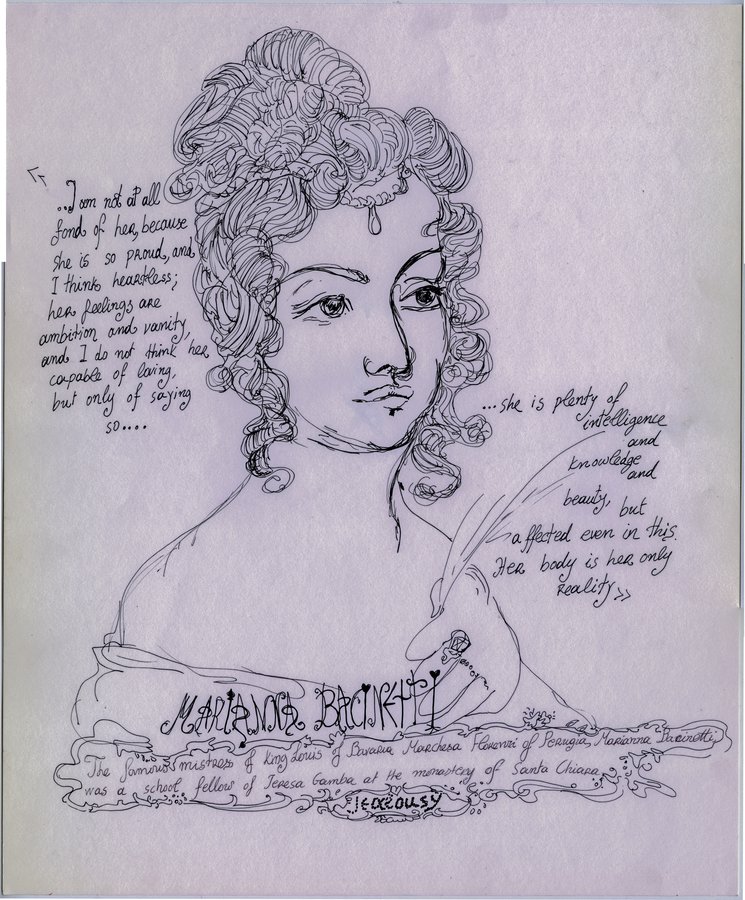 << ...I am not at all
fond of her, because
she is so proud, and
I think heartless;
her feelings are
ambition and vanity,
and I do not think her
capable of loving,
but only of saying
so....
...she is plenty of
intelligence
and
knowledge
and
beauty, but
affected even in this.
Her body is her only
reality >>
MARIANNA BACINETTI
The famous mistress of King Louis of Bavaria Marchesa Florenzi of Perugia, Marianna Bacinetti
was a school fellow of Teresa Gamba at the monastery of Santa Chiara
Jealousy